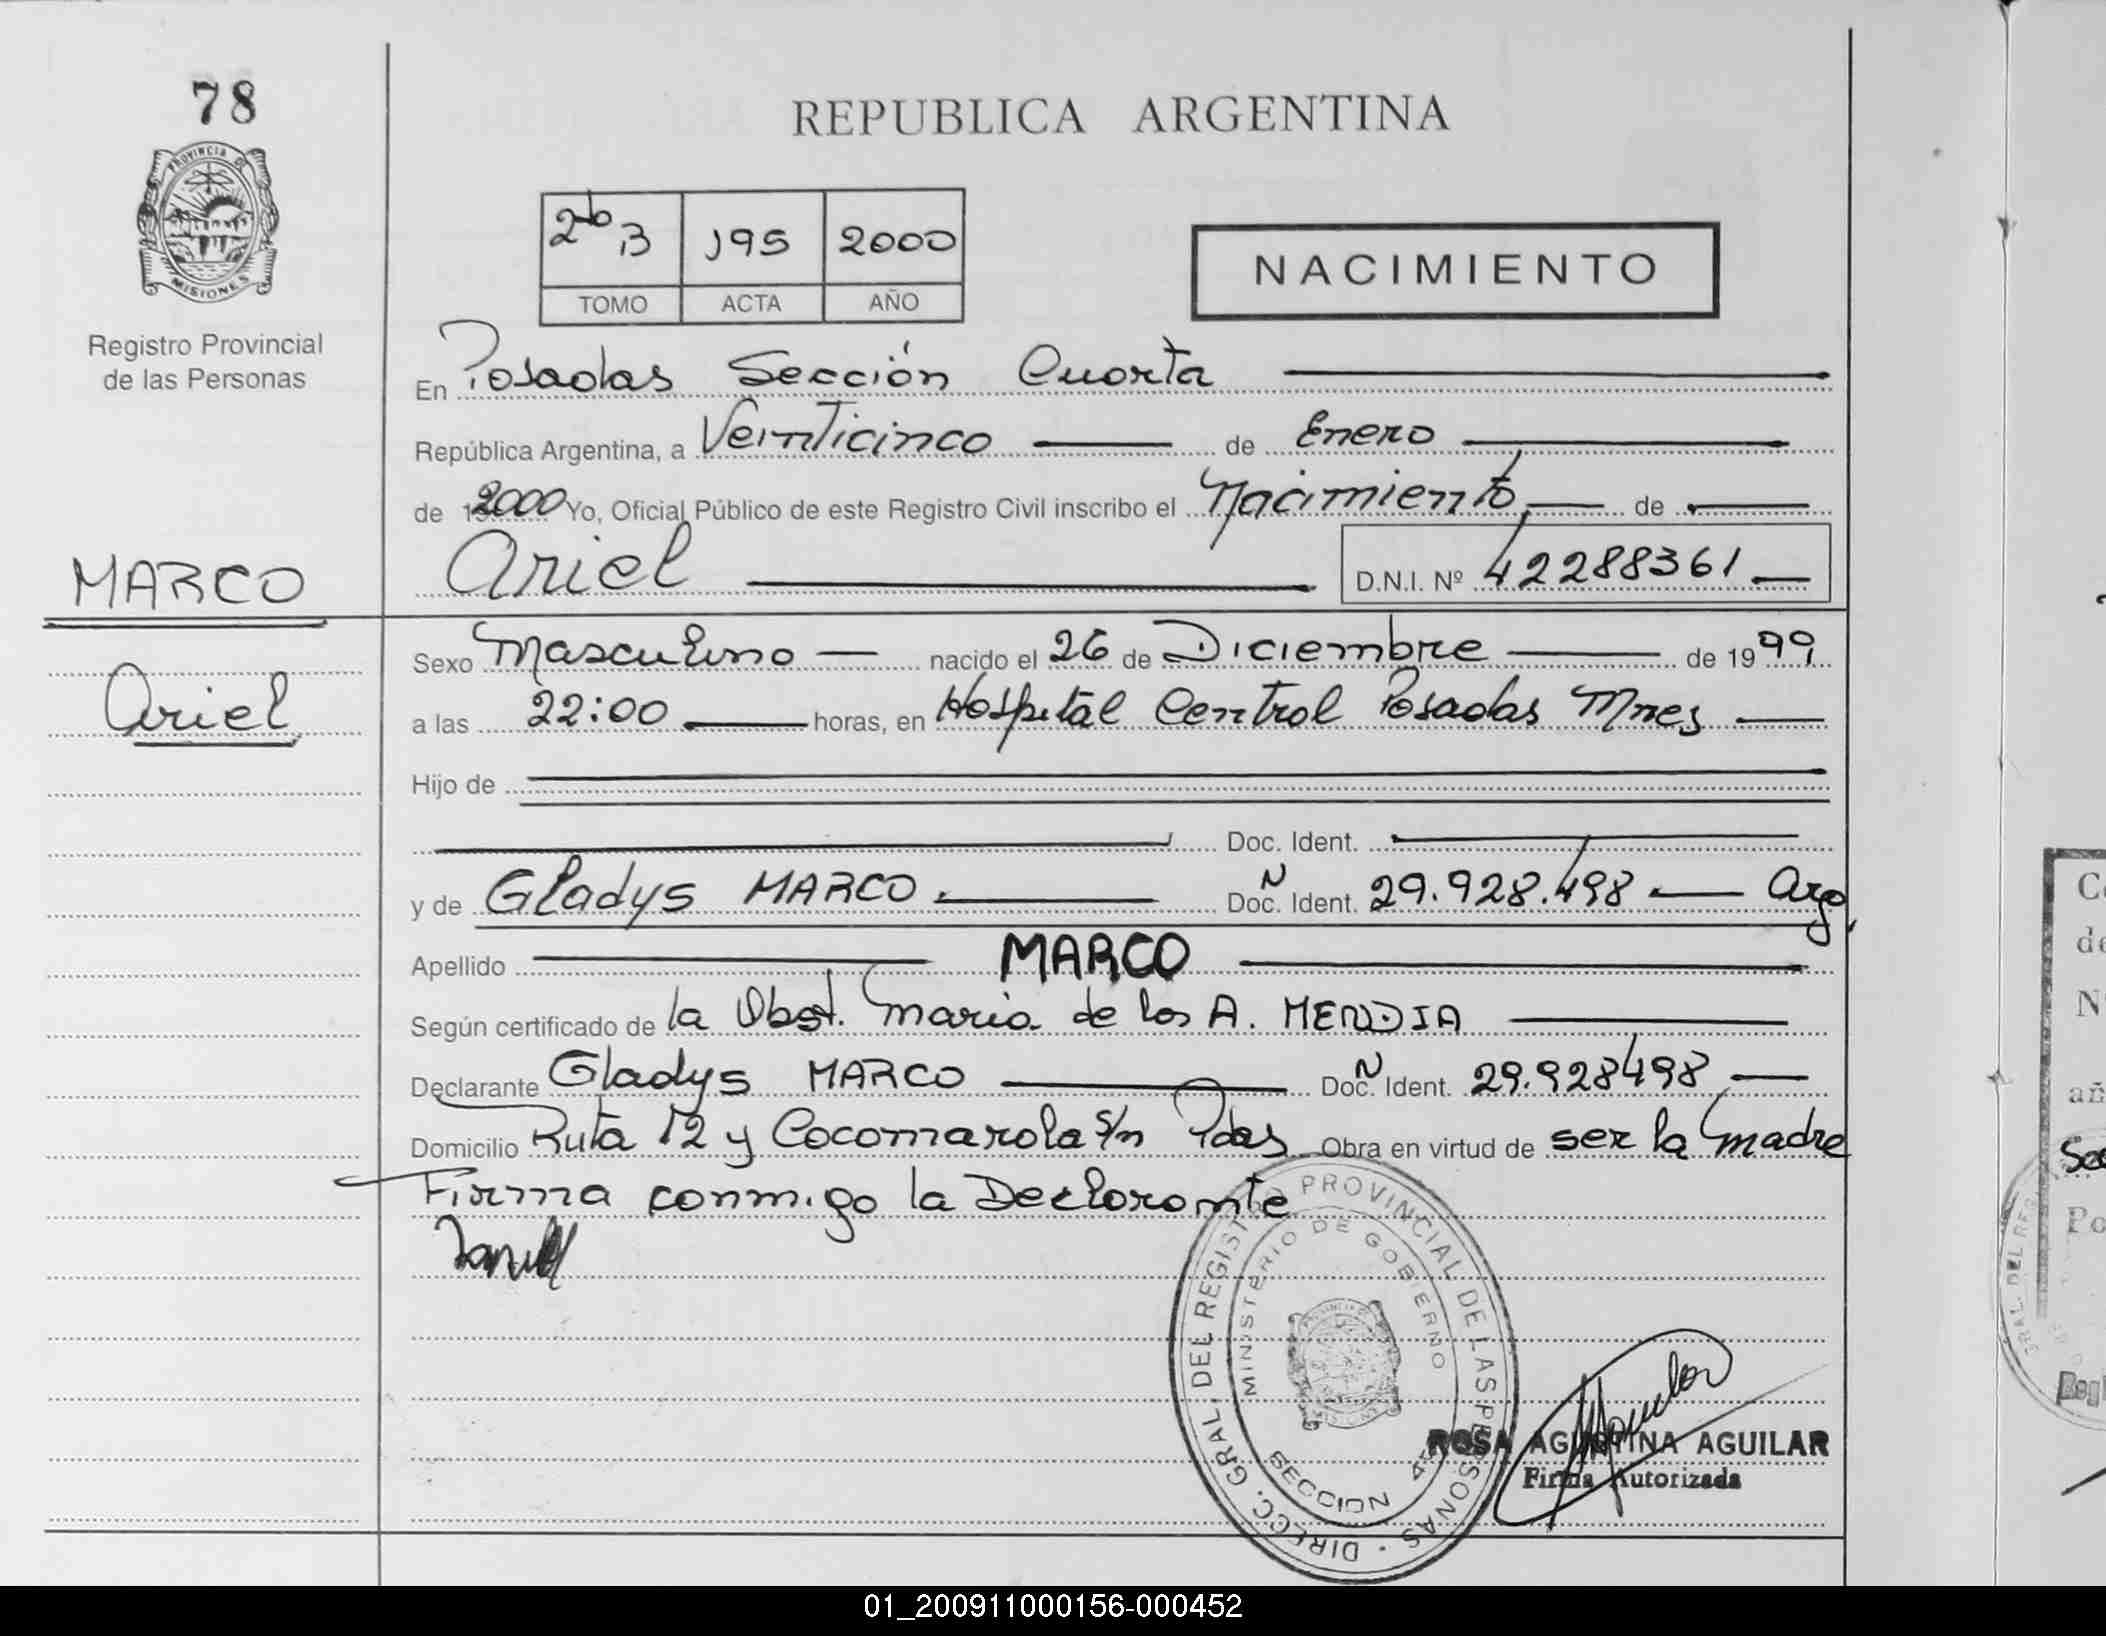 78
PROVINCIA DE
MISIONES
Registro Provincial
de las Personas
MARCO
Ariel
REPUBLICA ARGENTINA
2to B 195 2000
TOMO ACTA AÑO
NACIMIENTO
En Posadas Sección Cuarta
República Argentina, a Veinticinco de Enero
de 2000 Yo, Oficial Público de este Registro Civil inscribo el Nacimiento de
Ariel D.N.I. Nº 42288361
Sexo Masculino nacido el 26 de Diciembre de 1999
a las 22:00 horas, en Hospital Central Posadas Mnes
Hijo de
Doc. Ident.
y de Gladys MARCO Doc. N Ident. 29.928.498 Arg.
Apellido MARCO
Según certificado de la Obst. Maria de los A. MENDIA
Declarante Gladys MARCO Doc. N Ident. 29.928498
Domicilio Ruta 12 y Cocomarola s/n Pdas Obra en virtud de ser la Madre
Firma conmigo la Declarante
DIRECC. GRAL. DEL REGISTRO PROVINCIAL DE LAS PERSONAS
MINISTERIO DE GOBIERNO
SECCION 4ª
ROSA AGUSTINA AGUILAR
Firma Autorizada
de
N
añ
Sec
Po
GRAL. DEL REG
01_200911000156-000452